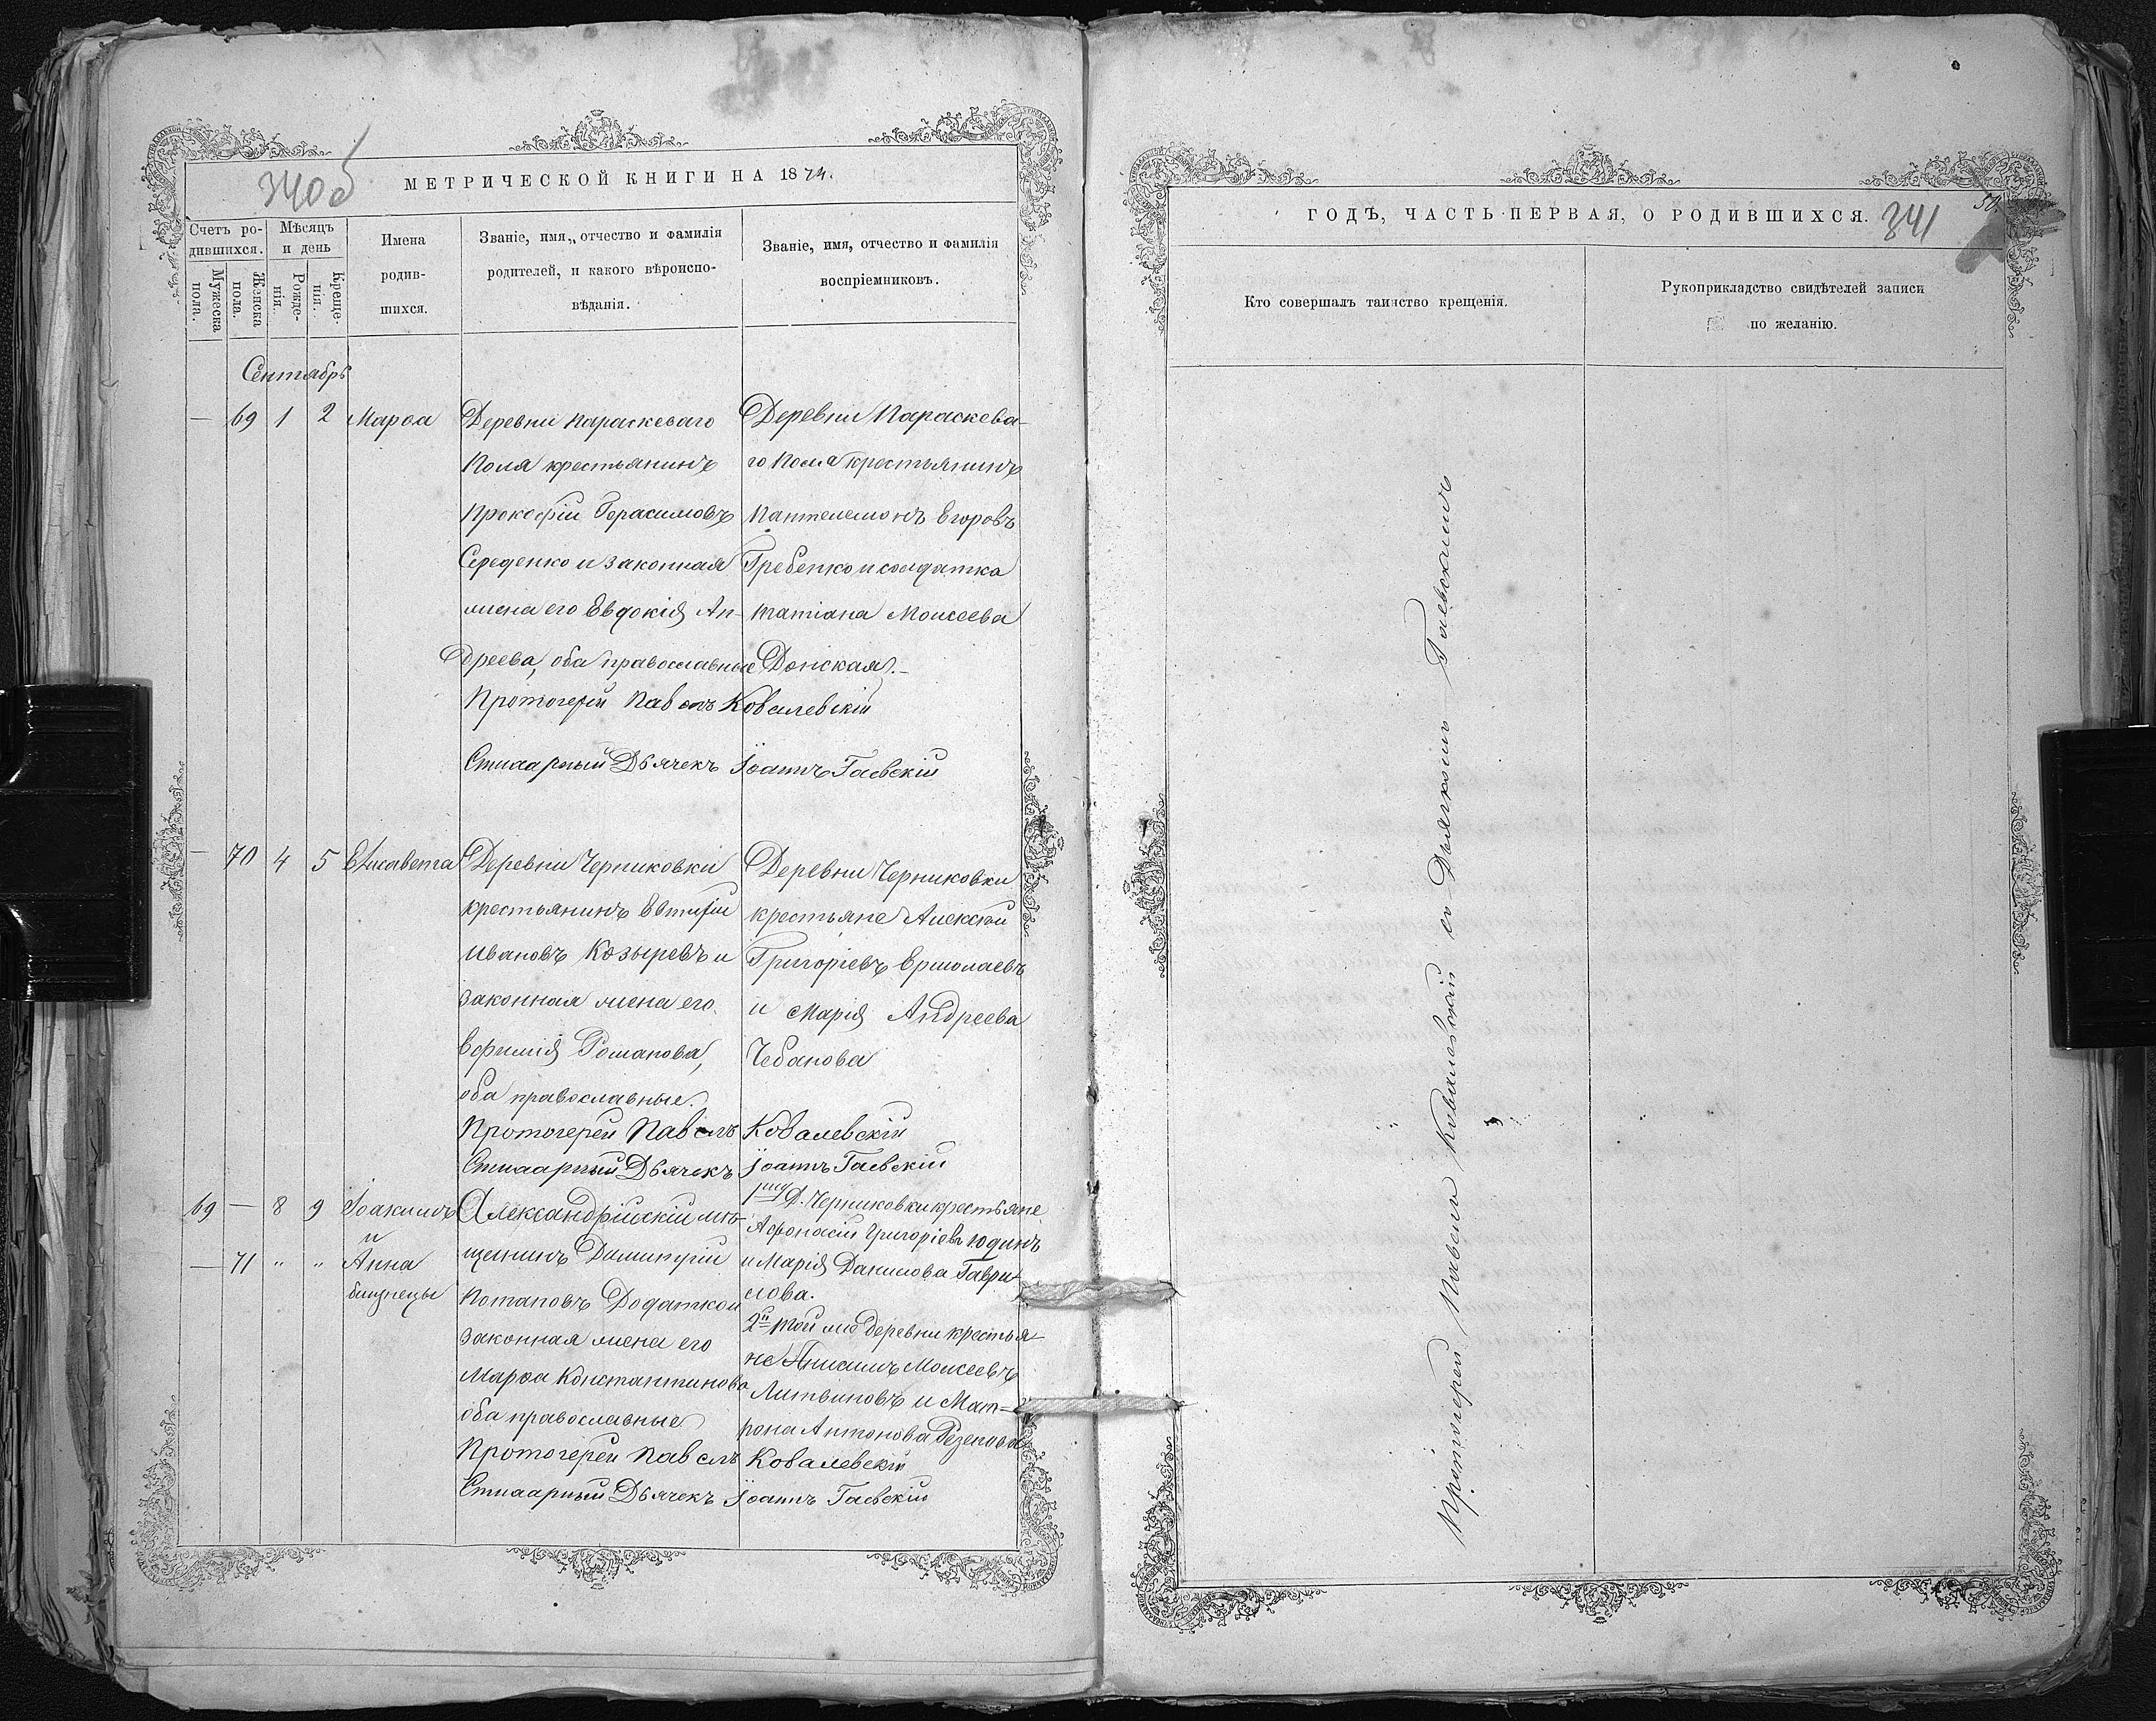 340об
МЕТРИЧЕСКОЙ КНИГИ НА 1874.
Счетъ ро-
дившихся.
Мужеска
пола.
Женска
пола.
Мѣсяцъ
и день
Рожде-
нія.
Креще-
нія.
Имена
родив-
шихся.
Званіе, имя, отчество и фамилія
родителей, и какого вѣроиспо-
вѣданія.
Званіе, имя, отчество и фамилія
воспріемниковъ.
Сентябрь
— 69 1 2 Марѳа
Деревни Параскеваго
Поля крестьянинъ
Прокофій Герасимовъ
Середенко и законная
жена его Евдокія Ан-
дреева, оба православные
Деревни Параскева-
го Поля крестьянинъ
Пантелемонъ Егоровъ
Гребенко и солдатка
Татіана Моисеева
Донская.—
Протоіерей Павелъ Ковалевскій
Стихарный Дьячекъ Іоаннъ Гаевскій
— 70 4 5 Елисавета
Деревни Черниковки
крестьянинъ Евтифій
Ивановъ Козыревъ и
законная жена его
Евфимія Романова,
оба православные.
Деревни Черниковки
крестьяне Алексѣй
Григоріевъ Ермолаевъ
и Марія Андреева
Чебанова
Протоіерей Павелъ Ковалевскій
Стихарный Дьячекъ Іоаннъ Гаевскій
69 — 8 9 Іоакимъ
и
— 71 " " Анна
близнецы
Александрійскій мѣ-
щанинъ Димитрій
Потаповъ Додатко и
законная жена его
Марѳа Константинова
оба православные
Д. Черниковки крестьяне
Афонасій Григоріевъ Юдинъ
и Марія Данилова Гаври-
лова.
2й Той же деревни крестья-
не Анисимъ Моисеевъ
Литвиновъ и Мат-
рона Антонова
Протоіерей Павелъ Ковалевскій
Стихарный Дьячекъ Іоаннъ Гаевскій
ГОДЪ, ЧАСТЬ ПЕРВАЯ, О РОДИВШИХСЯ.
341
50.
Кто совершалъ таинство крещенія.
Рукоприкладство свидѣтелей записи
по желанію.
Протоіерей Павелъ Ковалевскій съ Дьячкомъ Гаевскимъ